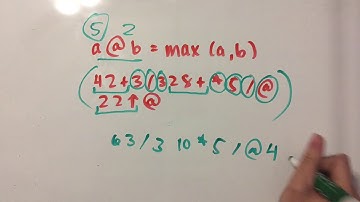 5 2
a @ b = max (a,b)
(42+3/328+*5/@
22↑@)
63/3 10*5/@4